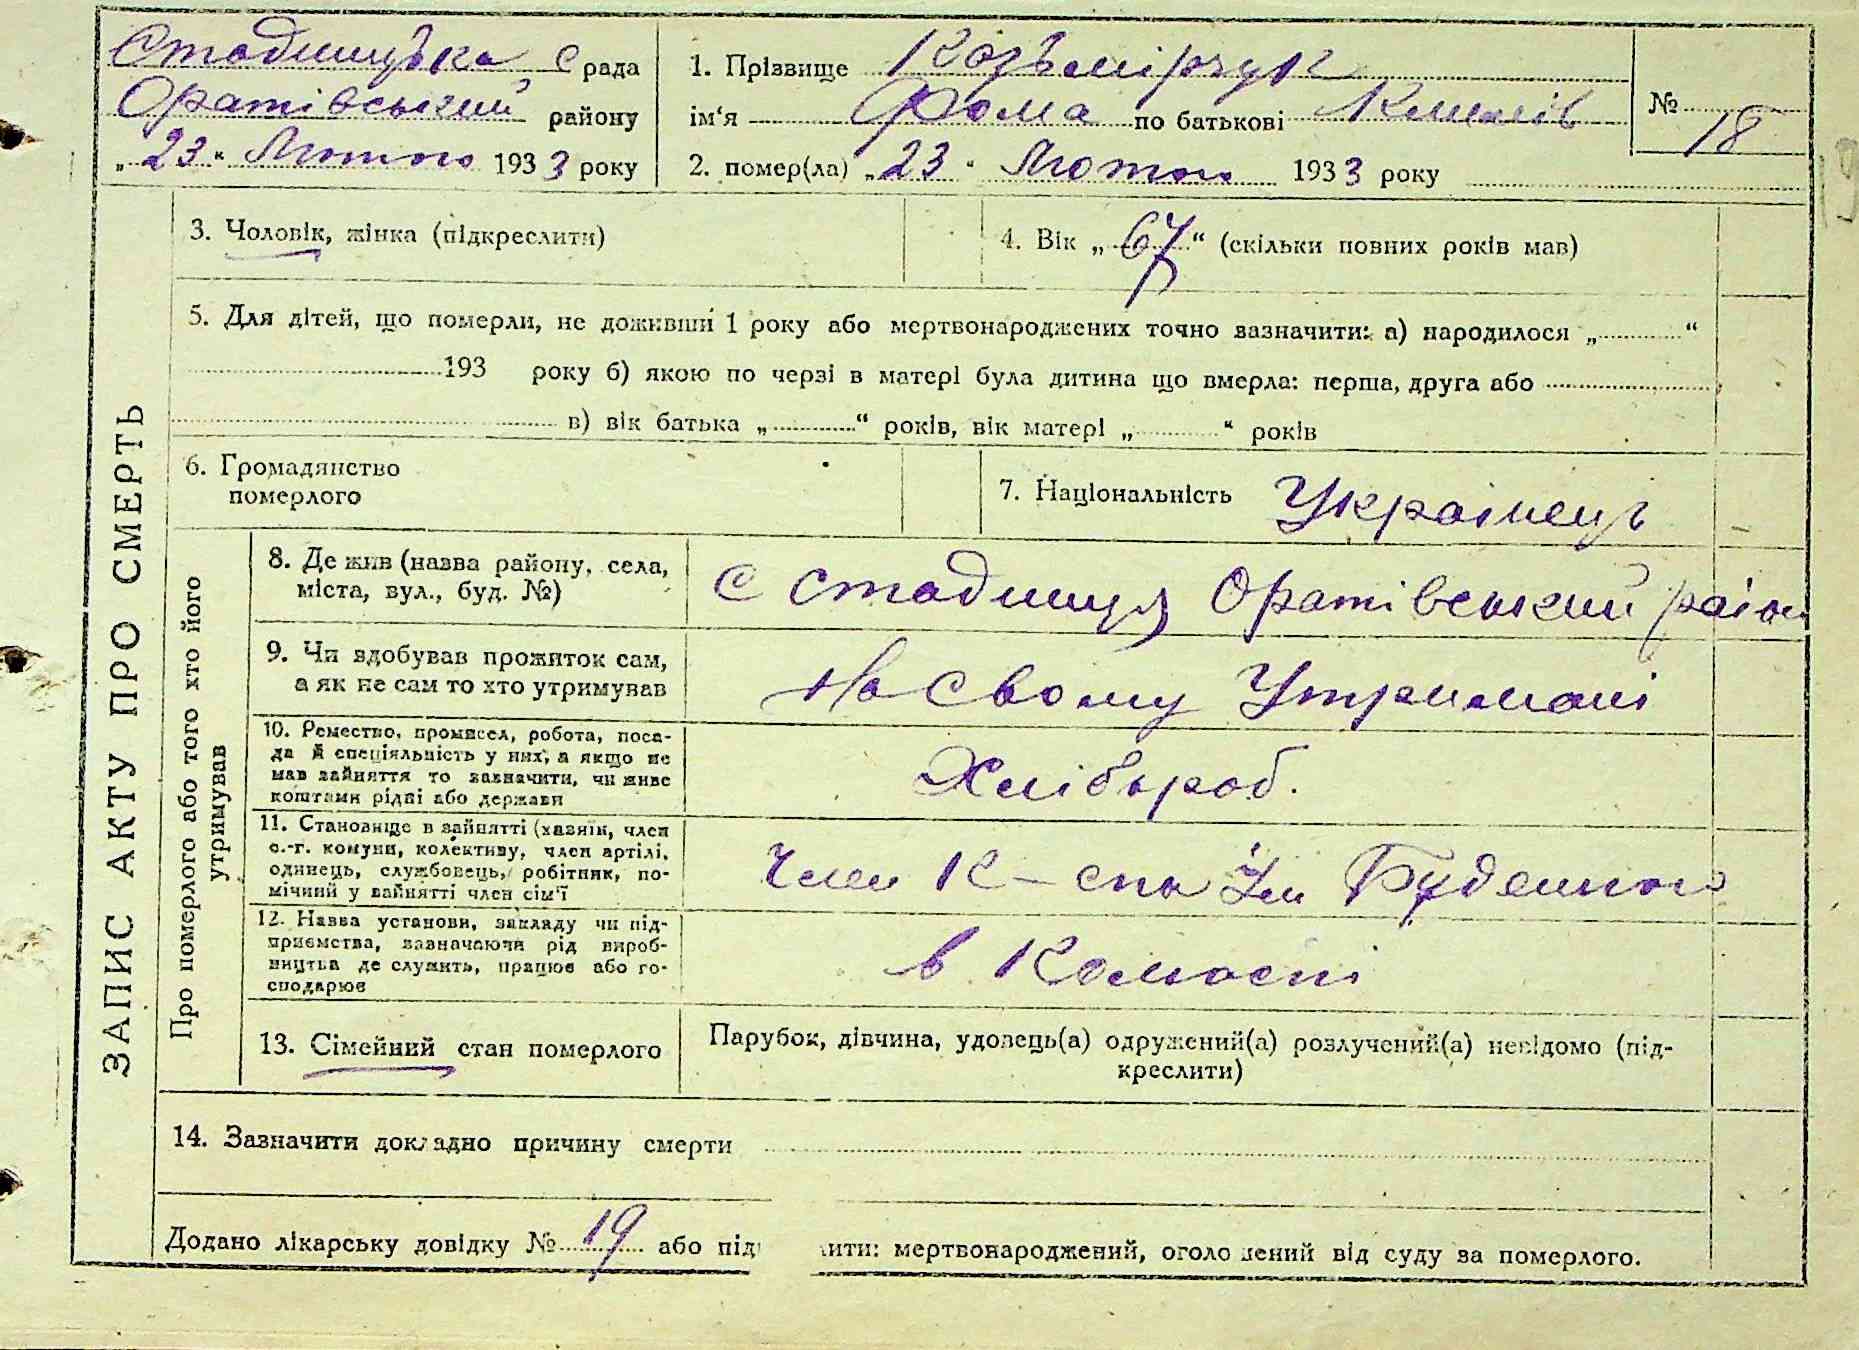 Стадницька с рада
Оратівський району
„23“ Лютого 1933 року
1. Прізвище Козьмірчук
ім‘я Фома по батькові Климів
2. помер(ла) „23“ Лютого 1933 року
№ 18
3. Чоловік, жінка (підкреслити)
4. Вік „67“ (скільки повних років мав)
5. Для дітей, що померли, не доживши 1 року або мертвонароджених точно зазначити: а) народилося „ “
193 року б) якою по черзі в матері була дитина що вмерла: перша, друга або
в) вік батька „ “ років, вік матері „ “ років
6. Громадянство
померлого
7. Національність Українець
ЗАПИС АКТУ ПРО СМЕРТЬ
Про померлого або того хто його
утримував
8. Де жив (назва району, села,
міста, вул., буд. №)
с Стадниця Оратівський район
9. Чи здобував прожиток сам,
а як не сам то хто утримував
На свому Утримані
10. Ремество, промисел, робота, поса-
да й спеціяльність у них, а якщо не
мав зайняття то зазначити, чи живе
коштами рідні або держави
Хлібороб.
11. Становище в зайнятті (хазяїн, член
с.-г. комуни, колективу, член артілі,
одинець, службовець, робітник, по-
мічний у зайнятті член сім‘ї
Член К-спа Ім Буденного
12. Назва установи, закладу чи під-
приємства, зазначаючи рід вироб-
ництва де служить, працює або го-
сподарює
в Колгоспі
13. Сімейний стан померлого
Парубок, дівчина, удовець(а) одружений(а) розлучений(а) невідомо (під-
креслити)
14. Зазначити докладно причину смерти
Додано лікарську довідку № 19 або під ити: мертвонароджений, оголошений від суду за померлого.